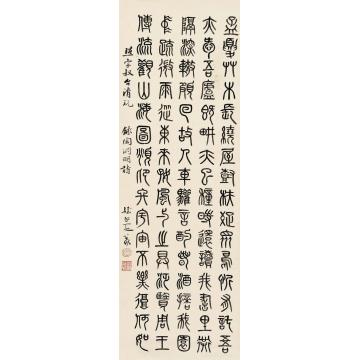 孟夏艸木長繞屋樹扶疏眾鳥欣有託吾
亦愛吾廬既耕亦已種時還讀我書窮巷
隔深轍頗回故人車歡言酌春酒摘我園
中蔬微雨從東來好風與之俱泛覽周王
傳流觀山海圖俯仰終宇宙不樂復何如
宇叔台清玩 錄陶淵明詩